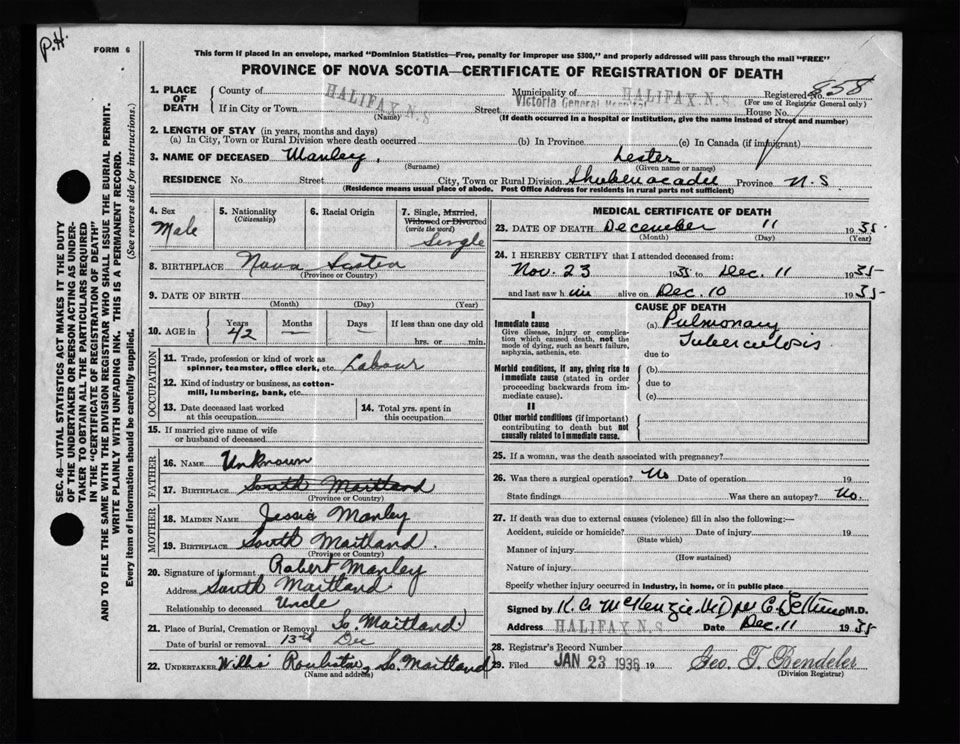 P.H.
FORM 6
This form if placed in an envelope, marked "Dominion Statistics—Free, penalty for improper use $300," and properly addressed will pass through the mail "FREE"
PROVINCE OF NOVA SCOTIA—CERTIFICATE OF REGISTRATION OF DEATH
858
1. PLACE OF DEATH
County of HALIFAX N.S Municipality of HALIFAX N.S Registered No.
(For use of Registrar General only)
If in City or Town (Name) Street Victoria General Hospital House No.
(If death occurred in a hospital or institution, give the name instead of street and number)
2. LENGTH OF STAY (in years, months and days)
(a) In City, Town or Rural Division where death occurred (b) In Province (c) In Canada (if immigrant)
3. NAME OF DECEASED Manley, Lester
(Surname) (Given name or names)
RESIDENCE No. Street City, Town or Rural Division Shubenacadie Province N.S
(Residence means usual place of abode. Post Office Address for residents in rural parts not sufficient)
4. Sex Male
5. Nationality (Citizenship)
6. Racial Origin
7. Single, Married, Widowed or Divorced (write the word) Single
8. BIRTHPLACE Nova Scotia
(Province or Country)
9. DATE OF BIRTH
(Month) (Day) (Year)
10. AGE in Years 42 Months — Days — If less than one day old
hrs. or min.
OCCUPATION
11. Trade, profession or kind of work as spinner, teamster, office clerk, etc. Labour
12. Kind of industry or business, as cotton-mill, lumbering, bank, etc.
13. Date deceased last worked at this occupation
14. Total yrs. spent in this occupation
15. If married give name of wife or husband of deceased
FATHER
16. NAME Unknown
17. BIRTHPLACE South Maitland
(Province or Country)
MOTHER
18. MAIDEN NAME Jessie Manley
19. BIRTHPLACE South Maitland.
(Province or Country)
20. Signature of informant Robert Manley
Address South Maitland
Relationship to deceased Uncle
21. Place of Burial, Cremation or Removal So. Maitland
Date of burial or removal 13rd Dec
22. UNDERTAKER So. Maitland
(Name and address)
MEDICAL CERTIFICATE OF DEATH
23. DATE OF DEATH December 11 1935
(Month) (Day) (Year)
24. I HEREBY CERTIFY that I attended deceased from:
Nov. 23 1935 to Dec. 11 1935
and last saw h im alive on Dec. 10 1935
CAUSE OF DEATH
I
Immediate cause
Give disease, injury or complication which caused death, not the mode of dying, such as heart failure, asphyxia, asthenia, etc.
(a) Pulmonary
Tuberculosis
due to
Morbid conditions, if any, giving rise to immediate cause (stated in order proceeding backwards from immediate cause).
(b)
due to
(c)
II
Other morbid conditions (if important) contributing to death but not causally related to immediate cause.
25. If a woman, was the death associated with pregnancy?
26. Was there a surgical operation? No Date of operation 19
State findings Was there an autopsy? No.
27. If death was due to external causes (violence) fill in also the following:—
Accident, suicide or homicide? Date of injury 19
(State which)
Manner of injury
(How sustained)
Nature of injury
Specify whether injury occurred in industry, in home, or in public place
Signed by K. C. McKenzie M.D. M.D.
Address HALIFAX N.S Date Dec. 11 1935
28. Registrar's Record Number
29. Filed JAN 23 1936 19 Geo. T. Bendeler
(Division Registrar)
SEC. 46—VITAL STATISTICS ACT MAKES IT THE DUTY
OF THE UNDERTAKER OR PERSON ACTING AS UNDER-
TAKER TO OBTAIN ALL THE PARTICULARS REQUIRED
IN THE "CERTIFICATE OF REGISTRATION OF DEATH"
AND TO FILE THE SAME WITH THE DIVISION REGISTRAR WHO SHALL ISSUE THE BURIAL PERMIT.
WRITE PLAINLY WITH UNFADING INK. THIS IS A PERMANENT RECORD.
Every item of information should be carefully supplied. (See reverse side for instructions.)